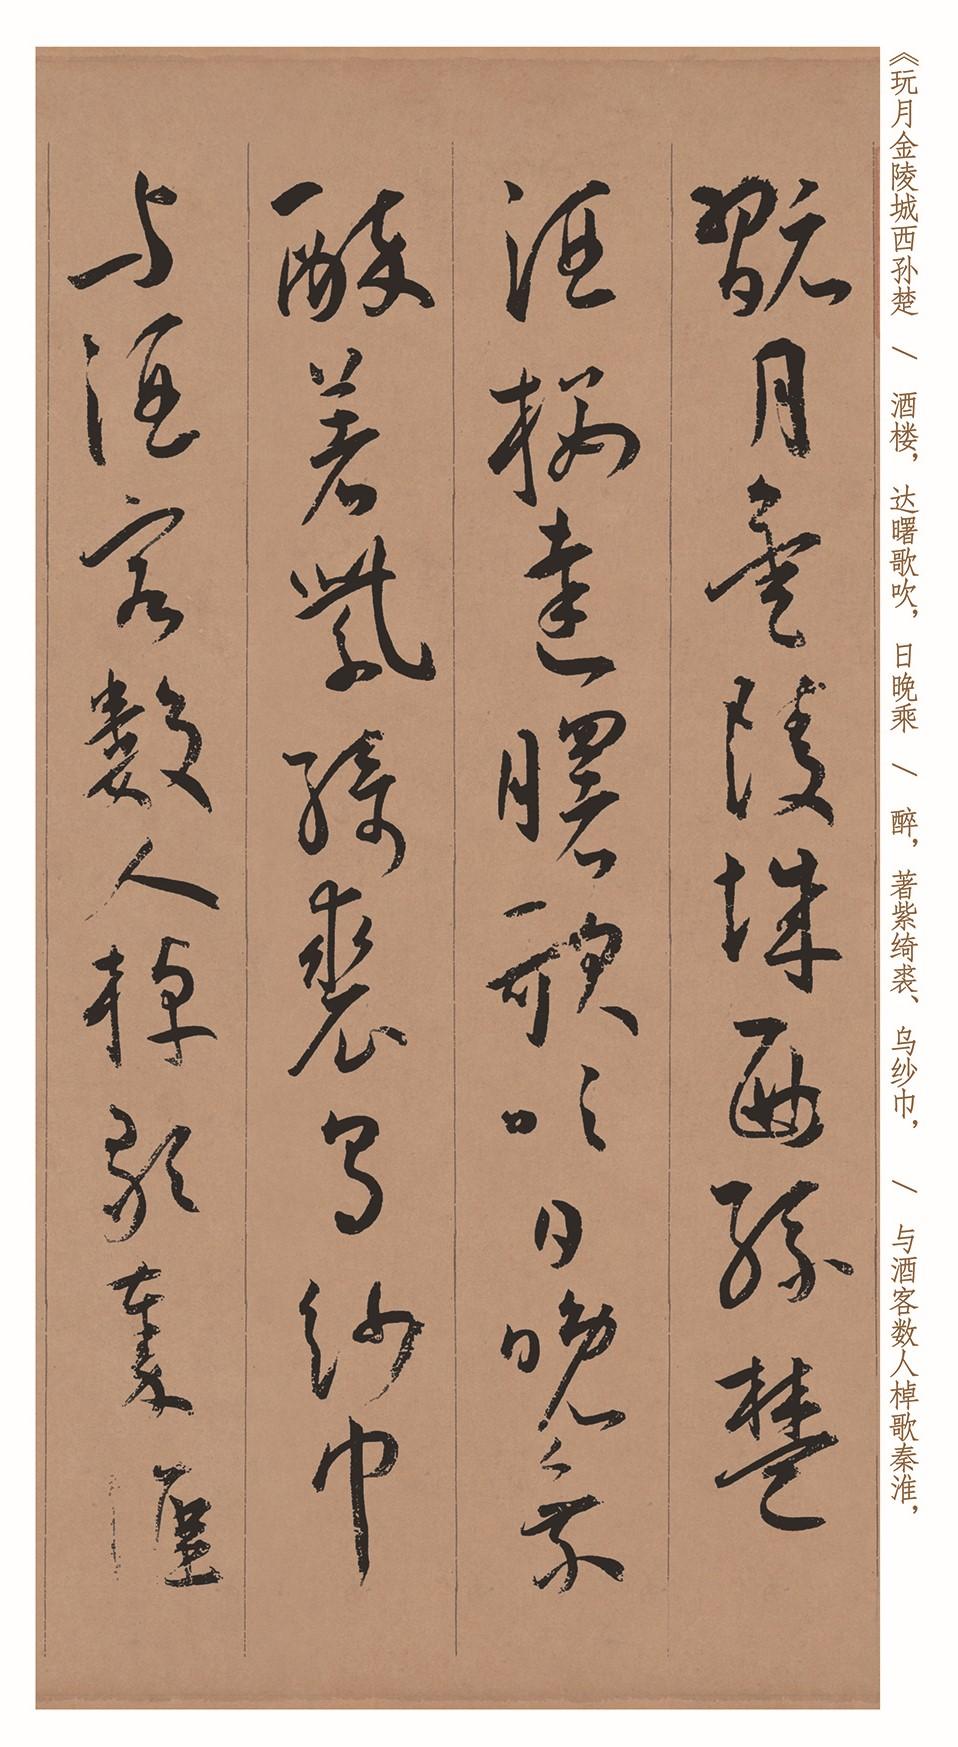 《玩月金陵城西孙楚 / 酒楼，达曙歌吹，日晚乘 / 醉，著紫绮裘、乌纱巾， / 与酒客数人棹歌秦淮，
翫月金陵城西孫楚
酒樓達曙歌吹日晚乘
醉著紫綺裘烏紗巾
与酒客數人棹歌秦淮